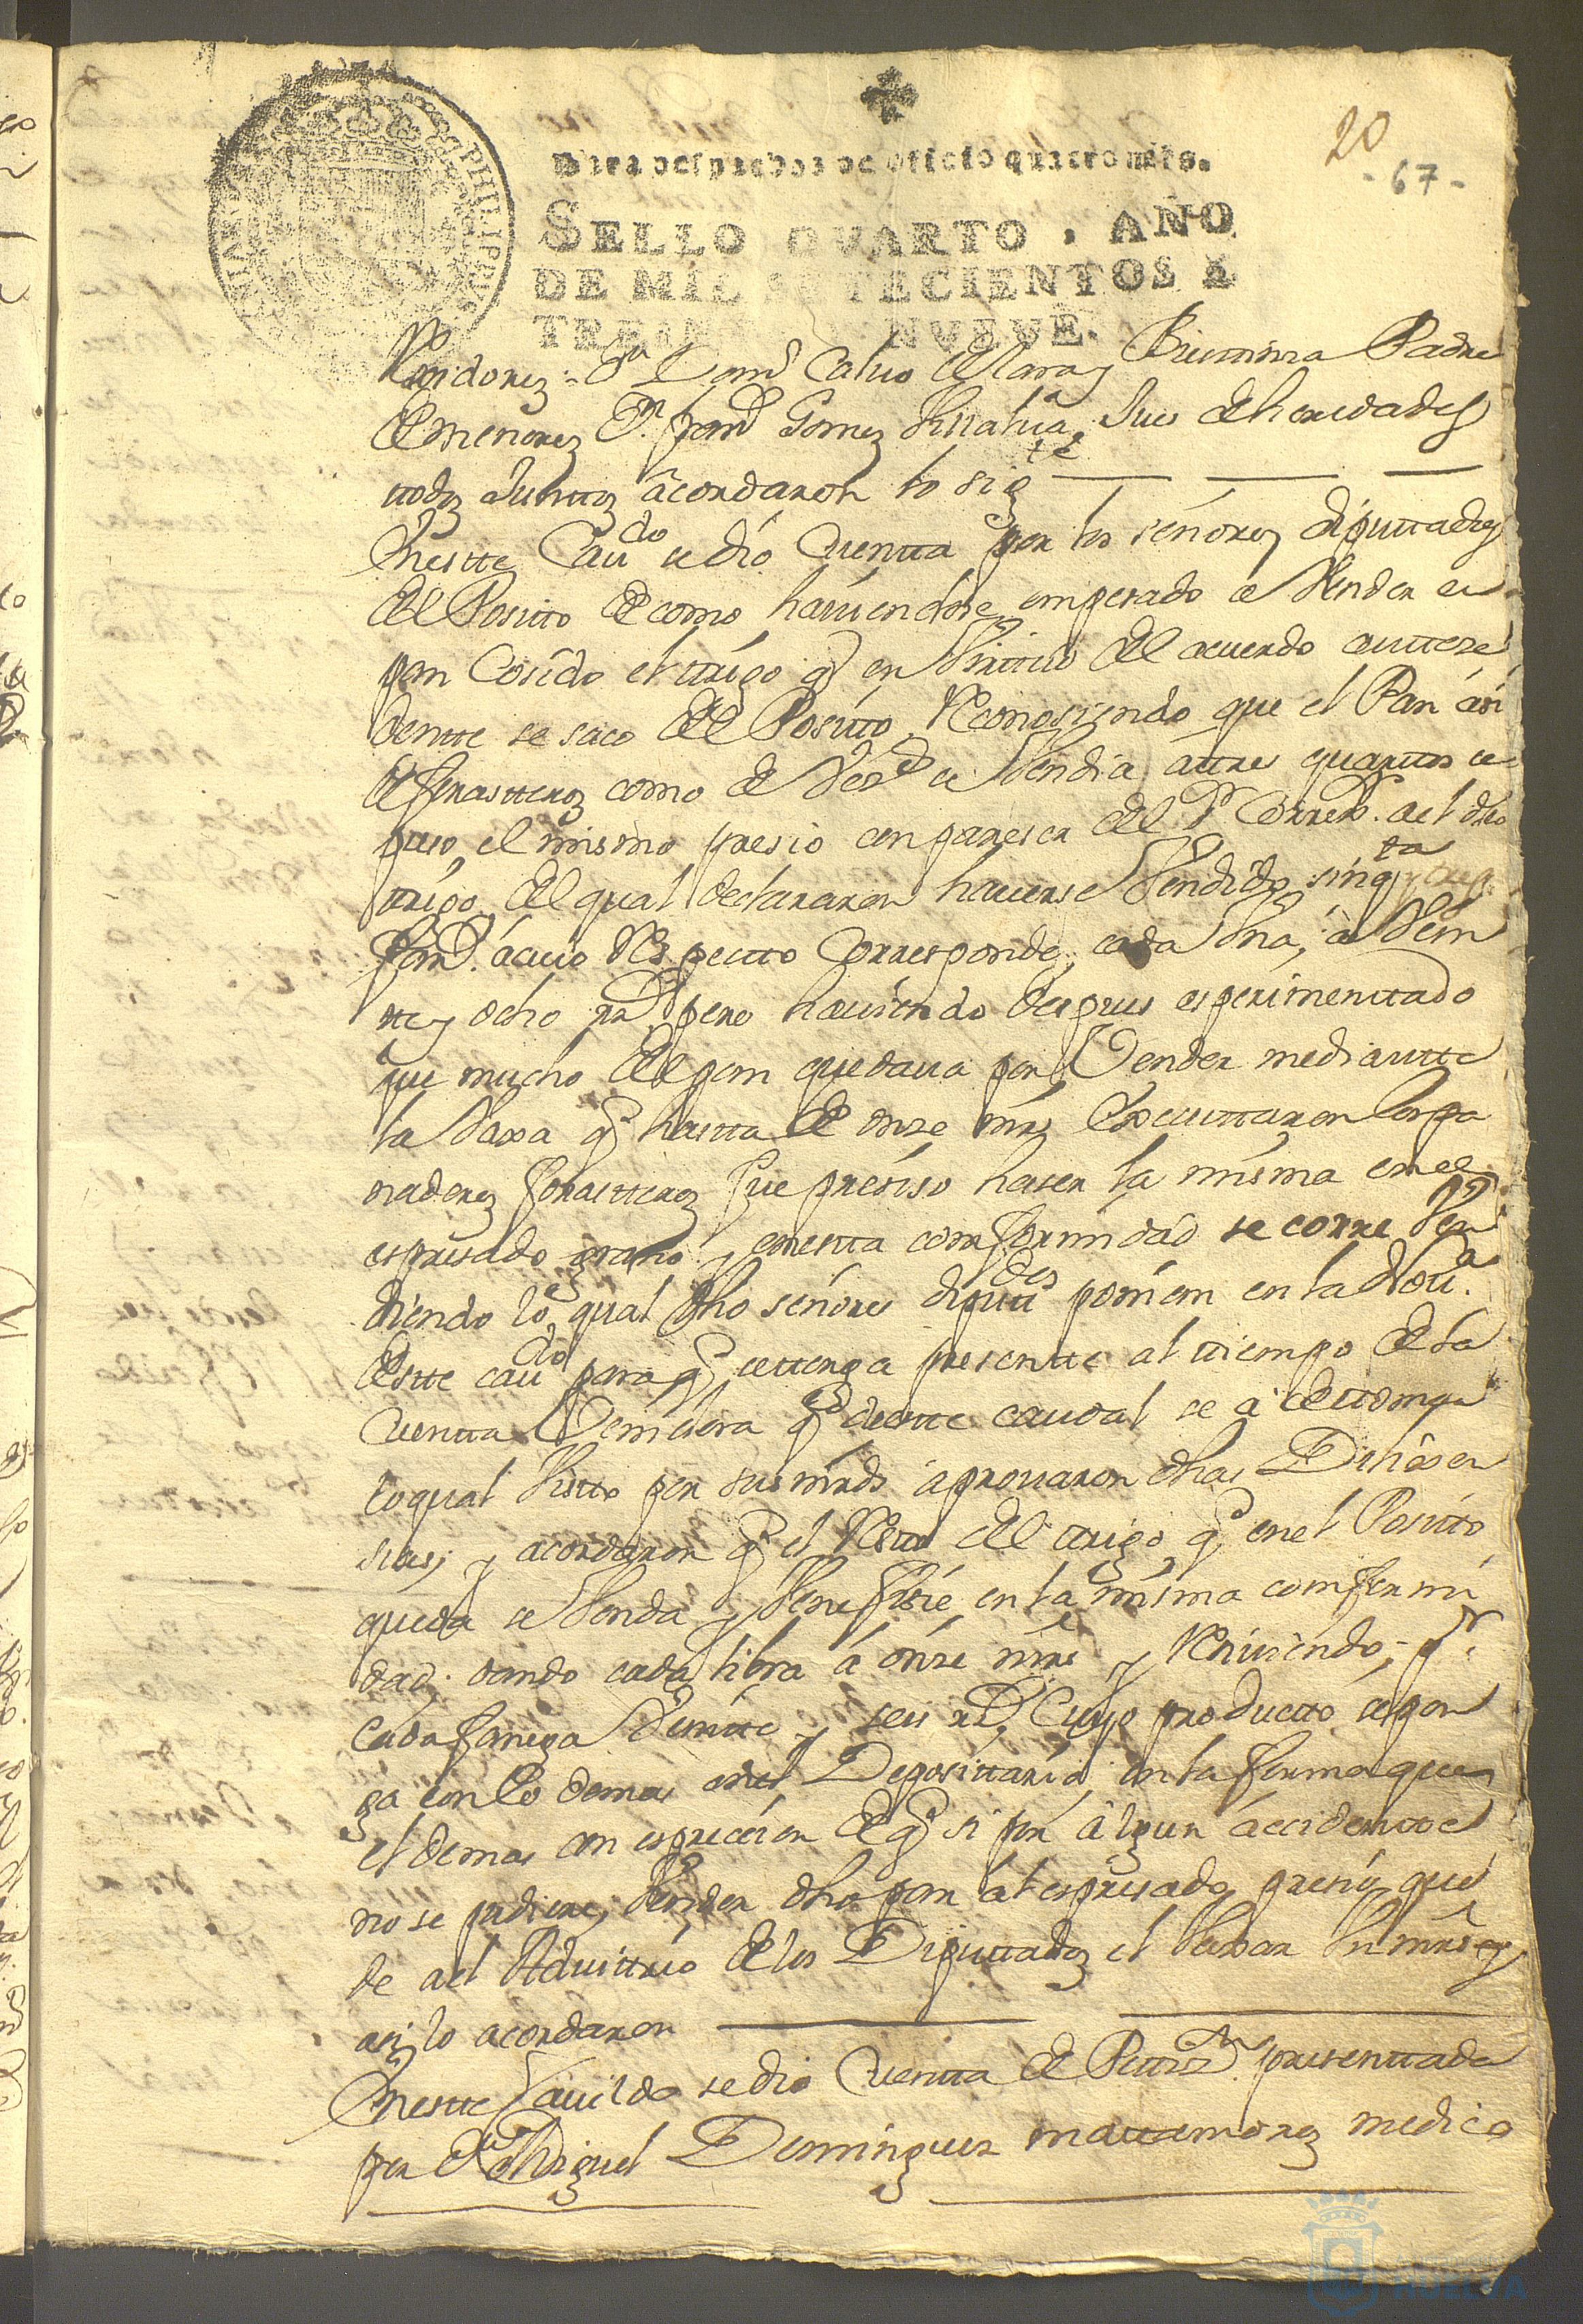 20
- 67 -
Para despachos de oficio quatro mrs.
SELLO QVARTO, AÑO
DE MIL SETECIENTOS Y
TREINTA Y NVEVE.
PHILIPPUS
Residores = Dn Calvo de Lara y Padre
de menores Dn franco Gomez Juez de heredades
todos Juntos acordaron lo sigte
En este Cavdo se dio Cuenta por los señores diputados
del Posito de como haviendose empesado a Vender en
pan Cosido el trigo q en Virttud del acuerdo antteze
dentte se saco del Posito, Reconosiendo que el Pan asi
de forastteros como de Vesos se Vendia a tres quarttos se
puso el mismo presio con pareser del Sr Correxr. a el dho
trigo, del qual declararon haverse Vendido sinqta
fans. a cuio Respectto Corresponde cada Una, a Vein
tte y ocho rrs pero haviendo despues esperimenttado
que mucho del pan quedava por Vender mediantte
la Vaxa q hastta de onze mrs Executtaron los pa
naderos forastteros fue presiso haser la misma en el
espresado grano y en estta comformidad se corre Ven
diendo lo qual dhos señores diputtdos ponian en la notta.
destte cavdo para q se ttenga presentte al ttiempo de la
Cuentta Venidera q destte caudal se a de ttomar
lo qual Vistto por sus mrds aprovaron dhas Dilixen
sias, y acordaron q el Restto del trigo q en el Positto
queda se Venda y Venefisie en la misma comformi
dad. dando cada libra a onze mrs y Reciviendo pr.
cada fanega Veintte y seis rrs, Cuyo productto se pon
ga con lo demas en el Deposittario en la forma que
el demas con esprecion de q si por algun accidentte
no se pudiere Vender dho pan al espresado presio que
de a el Advittrio de los Diputtados el Vaxar Un mrs y
asi lo acordaron
En estte Cavildo se dio Cuentta de Pettisn. presenttada
por Dn Miguel Dominguez Mattamoros medico
HUELVA